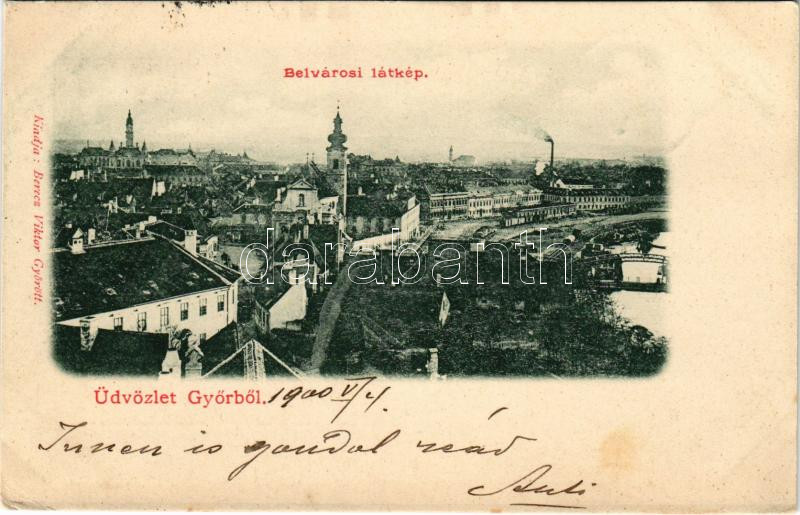 Belvárosi látkép.
Kiadja: Berecz Viktor Győrött.
darabanth
Üdvözlet Győrből. 1900 V/4.
Innen is gondol reád
Anti